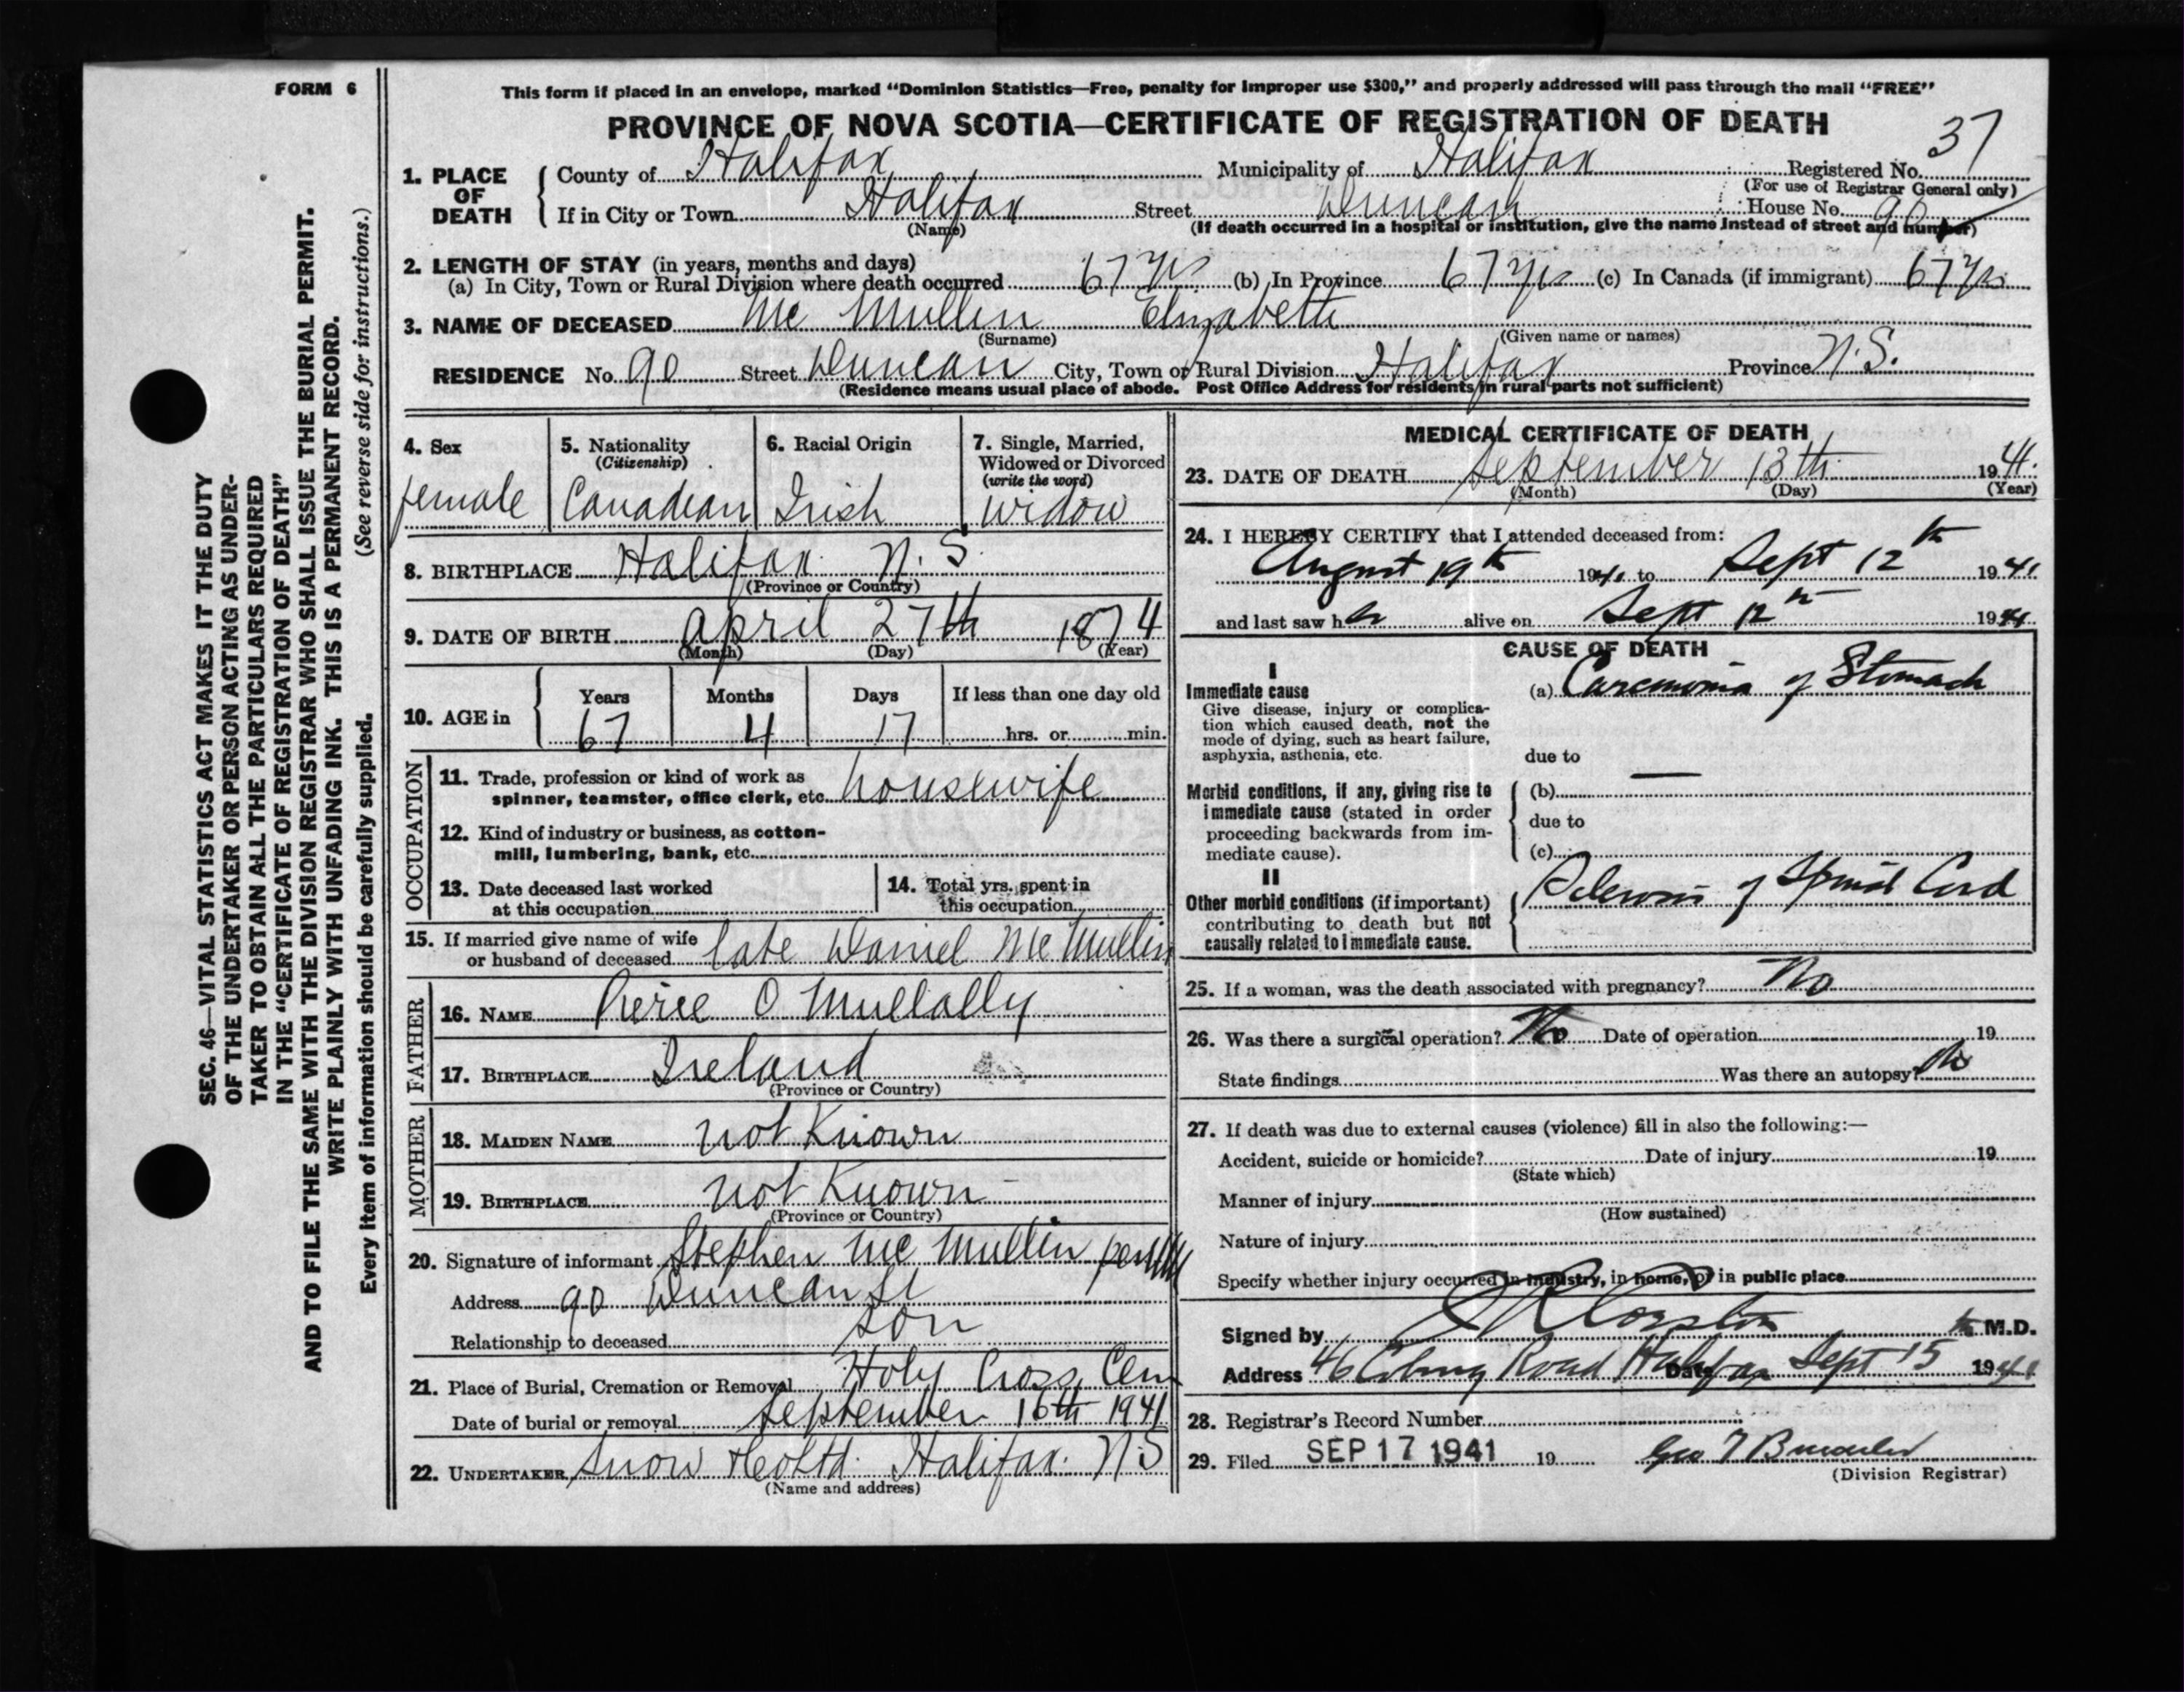 FORM 6
This form if placed in an envelope, marked "Dominion Statistics—Free, penalty for improper use $300," and properly addressed will pass through the mail "FREE"
PROVINCE OF NOVA SCOTIA—CERTIFICATE OF REGISTRATION OF DEATH
1. PLACE OF DEATH
County of Halifax Municipality of Halifax Registered No. 37
(For use of Registrar General only)
If in City or Town Halifax Street Duncan House No. 90
(Name) (If death occurred in a hospital or institution, give the name instead of street and number)
2. LENGTH OF STAY (in years, months and days)
(a) In City, Town or Rural Division where death occurred 67 yrs (b) In Province 67 yrs (c) In Canada (if immigrant) 67 yrs
3. NAME OF DECEASED Mc Mullin Elizabeth
(Surname) (Given name or names)
RESIDENCE No. 90 Street Duncan City, Town or Rural Division Halifax Province N.S.
(Residence means usual place of abode. Post Office Address for residents in rural parts not sufficient)
4. Sex
female
5. Nationality
(Citizenship)
Canadian
6. Racial Origin
Irish
7. Single, Married,
Widowed or Divorced
(write the word)
widow
8. BIRTHPLACE Halifax N.S.
(Province or Country)
9. DATE OF BIRTH April 27th 1874
(Month) (Day) (Year)
10. AGE in
Years Months Days If less than one day old
67 4 17 hrs. or min.
OCCUPATION
11. Trade, profession or kind of work as
spinner, teamster, office clerk, etc. housewife
12. Kind of industry or business, as cotton-
mill, lumbering, bank, etc.
13. Date deceased last worked
at this occupation
14. Total yrs. spent in
this occupation
15. If married give name of wife
or husband of deceased late Daniel Mc Mullin
FATHER
16. NAME Pierce O Mullally
17. BIRTHPLACE Ireland
(Province or Country)
MOTHER
18. MAIDEN NAME not Known
19. BIRTHPLACE not Known
(Province or Country)
20. Signature of informant Stephen Mc Mullin per
Address 90 Duncan St
Relationship to deceased son
21. Place of Burial, Cremation or Removal Holy Cross Cem
Date of burial or removal September 16th 1941
22. UNDERTAKER Snow & Co Ltd. Halifax. N.S
(Name and address)
MEDICAL CERTIFICATE OF DEATH
23. DATE OF DEATH September 13th 1941.
(Month) (Day) (Year)
24. I HEREBY CERTIFY that I attended deceased from:
August 19th 1941 to Sept 12th 1941
and last saw her alive on Sept 12th 1941
CAUSE OF DEATH
I
Immediate cause
Give disease, injury or complica-
tion which caused death, not the
mode of dying, such as heart failure,
asphyxia, asthenia, etc.
(a) Carcinoma of Stomach
due to
Morbid conditions, if any, giving rise to
immediate cause (stated in order
proceeding backwards from im-
mediate cause).
(b)
due to
(c)
II
Other morbid conditions (if important)
contributing to death but not
causally related to immediate cause.
Sclerosis of Spinal Cord
25. If a woman, was the death associated with pregnancy? No
26. Was there a surgical operation? No Date of operation 19
State findings Was there an autopsy? No
27. If death was due to external causes (violence) fill in also the following:—
Accident, suicide or homicide? Date of injury 19
(State which)
Manner of injury
(How sustained)
Nature of injury
Specify whether injury occurred in industry, in home, or in public place
Signed by M.D.
Address 46 Coburg Road Halifax Date Sept 15 1941
28. Registrar's Record Number
29. Filed SEP 17 1941 19 Geo
(Division Registrar)
SEC. 46—VITAL STATISTICS ACT MAKES IT THE DUTY
OF THE UNDERTAKER OR PERSON ACTING AS UNDER-
TAKER TO OBTAIN ALL THE PARTICULARS REQUIRED
IN THE "CERTIFICATE OF REGISTRATION OF DEATH"
AND TO FILE THE SAME WITH THE DIVISION REGISTRAR WHO SHALL ISSUE THE BURIAL PERMIT.
WRITE PLAINLY WITH UNFADING INK. THIS IS A PERMANENT RECORD.
(See reverse side for instructions.)
Every item of information should be carefully supplied.